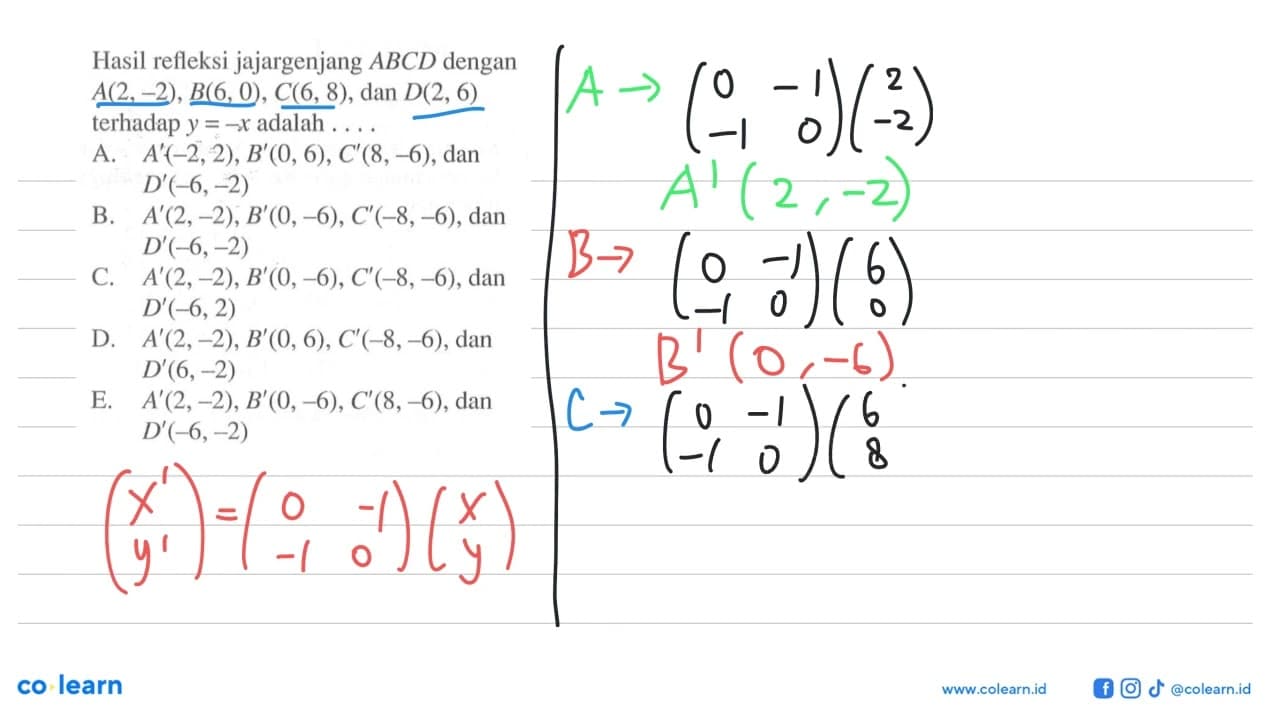 Hasil refleksi jajargenjang ABCD dengan
A(2, –2), B(6, 0), C(6, 8), dan D(2, 6)
terhadap y = –x adalah . . . .
A. A'(–2, 2), B'(0, 6), C'(8, –6), dan
D'(–6, –2)
B. A'(2, –2), B'(0, –6), C'(–8, –6), dan
D'(–6, –2)
C. A'(2, –2), B'(0, –6), C'(–8, –6), dan
D'(–6, 2)
D. A'(2, –2), B'(0, 6), C'(–8, –6), dan
D'(6, –2)
E. A'(2, –2), B'(0, –6), C'(8, –6), dan
D'(–6, –2)
(x' y') = (0 -1 -1 0) (x y)
A → (0 -1 -1 0) (2 -2)
A' (2, -2)
B → (0 -1 -1 0) (6 0)
B' (0, -6)
C → (0 -1 -1 0) (6 8
co learn
www.colearn.id
@colearn.id